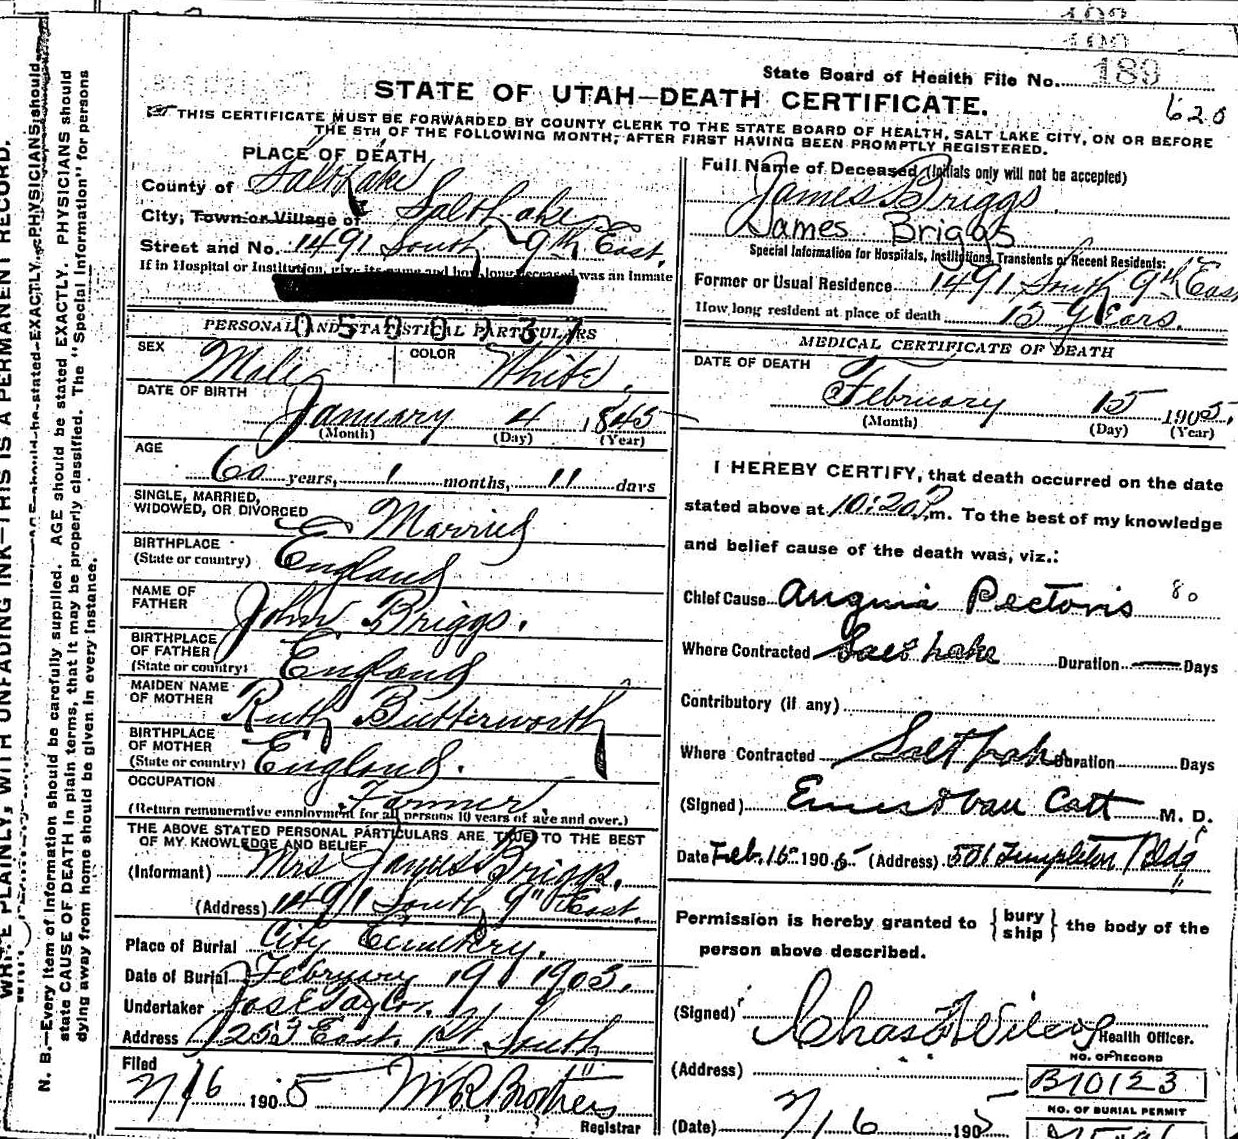 State Board of Health File No. 189
STATE OF UTAH—DEATH CERTIFICATE.
620
THIS CERTIFICATE MUST BE FORWARDED BY COUNTY CLERK TO THE STATE BOARD OF HEALTH, SALT LAKE CITY, ON OR BEFORE
THE 5TH OF THE FOLLOWING MONTH; AFTER FIRST HAVING BEEN PROMPTLY REGISTERED.
PLACE OF DEATH
County of Salt Lake
City, Town or Village of Salt Lake
Street and No. 1491 South 9th East.
If in Hospital or Institution, give its name and how long deceased was an inmate
PERSONAL AND STATISTICAL PARTICULARS
SEX Male COLOR White.
DATE OF BIRTH
January 4 1845
(Month) (Day) (Year)
AGE
60 years, 1 months, 11 days
SINGLE, MARRIED,
WIDOWED, OR DIVORCED Married
BIRTHPLACE
(State or country) England
NAME OF
FATHER John Briggs.
BIRTHPLACE
OF FATHER
(State or country) England
MAIDEN NAME
OF MOTHER Ruth Butterworth
BIRTHPLACE
OF MOTHER
(State or country) England.
OCCUPATION
Farmer.
(Return remunerative employment for all persons 10 years of age and over.)
THE ABOVE STATED PERSONAL PARTICULARS ARE TRUE TO THE BEST
OF MY KNOWLEDGE AND BELIEF
(Informant) Mrs James Briggs.
(Address) 1491 South 9" East.
Place of Burial City Cemetery.
Date of Burial February 19 1905.
Undertaker Jos E Taylor.
Address 253 East. 1st South
Filed
2/16 1905
Registrar
Full Name of Deceased (Initials only will not be accepted)
James Briggs.
James Briggs
Special Information for Hospitals, Institutions, Transients or Recent Residents:
Former or Usual Residence 1491 South 9th East
How long resident at place of death 15 years.
MEDICAL CERTIFICATE OF DEATH
DATE OF DEATH
February 15 1905.
(Month) (Day) (Year)
I HEREBY CERTIFY, that death occurred on the date
stated above at 10:20 P.m. To the best of my knowledge
and belief cause of the death was, viz.:
Chief Cause Angina Pectoris 80
Where Contracted Salt Lake Duration — Days
Contributory (if any)
Where Contracted Salt Lake Duration Days
(Signed) Van Cott M. D.
Date Feb. 16 1905 (Address) 501 Templeton Bldg
Permission is hereby granted to { bury
ship } the body of the
person above described.
(Signed) Chas Health Officer.
(Address)
NO. OF RECORD
B10123
NO. OF BURIAL PERMIT
(Date) 2/16 1905
N. B.—Every item of information should be carefully supplied. AGE should be stated EXACTLY. PHYSICIANS should
state CAUSE OF DEATH in plain terms, that it may be properly classified. The "Special Information" for persons
dying away from home should be given in every instance.
WRITE PLAINLY, WITH UNFADING INK—THIS IS A PERMANENT RECORD.